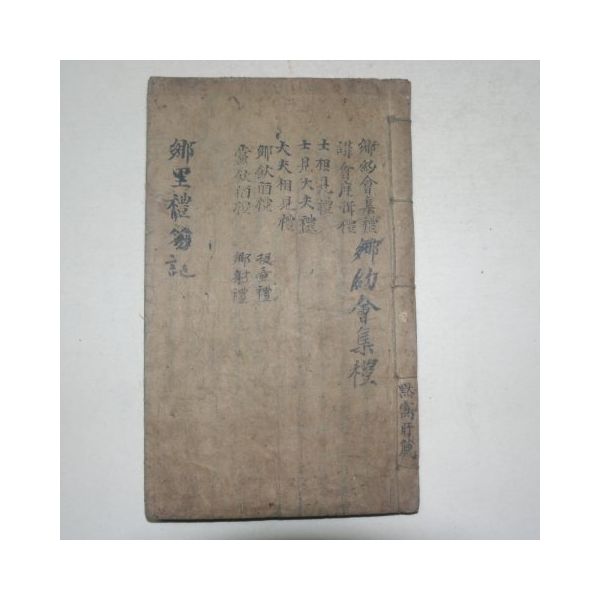 鄕約會集禮
講會用講禮
士相見禮
士見大夫禮
大夫相見禮
鄕飮酒禮
投壺禮
鄕射禮
鄕約會集禮
鄕里禮笏記